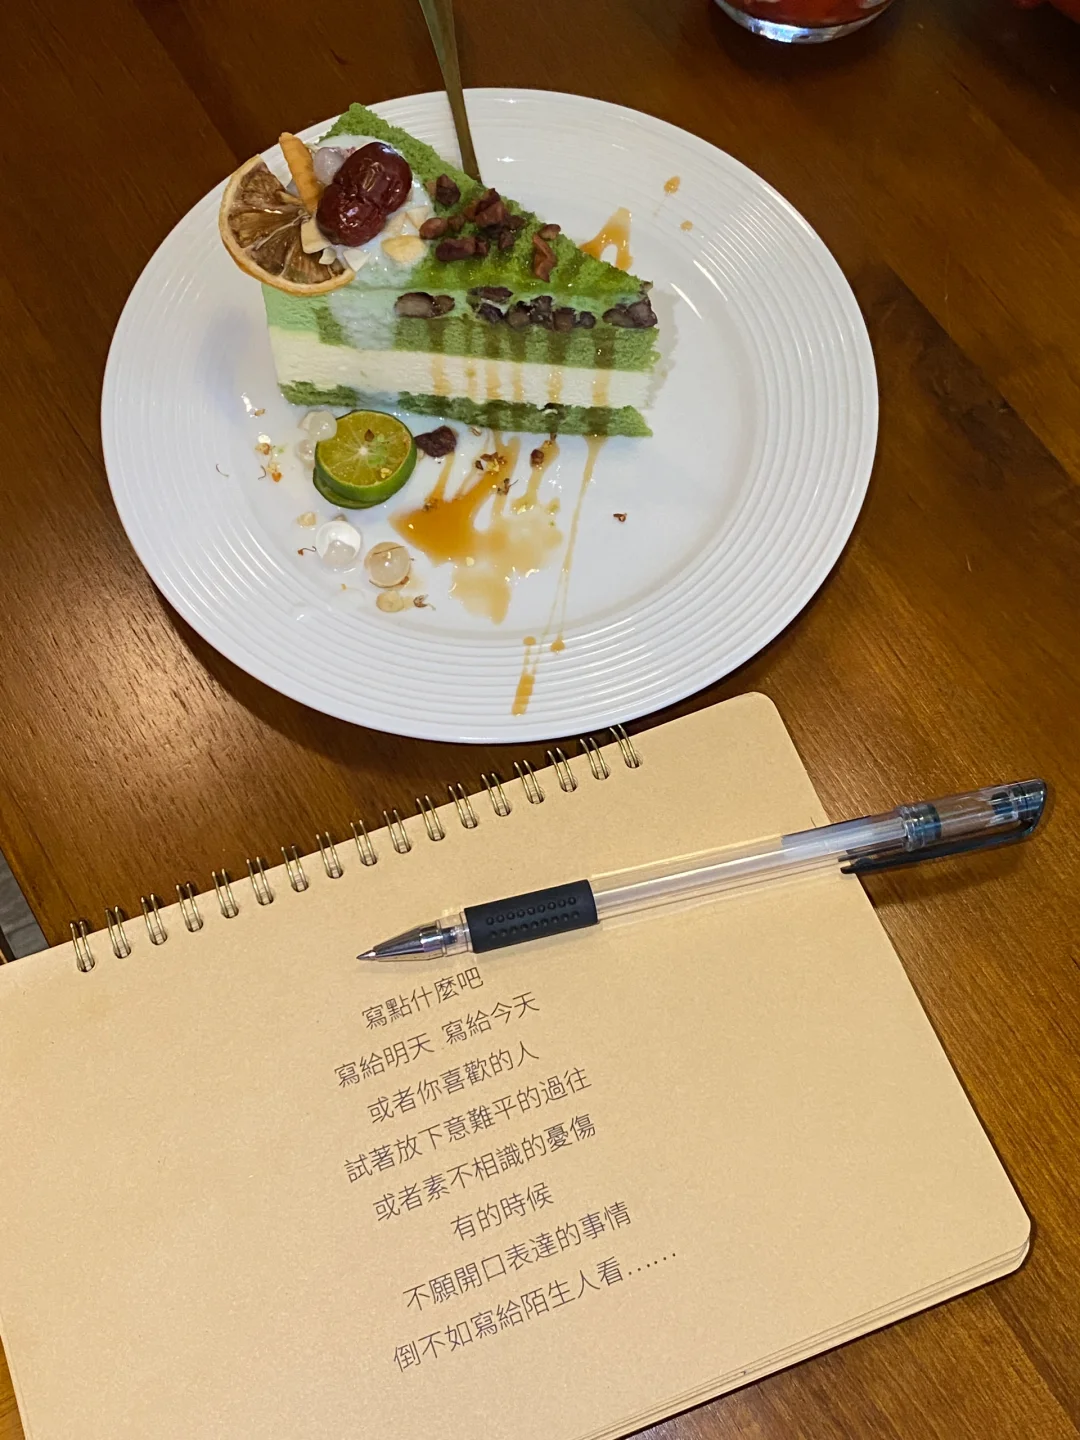 寫點什麼吧
寫給明天 寫給今天
或者你喜歡的人
試著放下意難平的過往
或者素不相識的憂傷
有的時候
不願開口表達的事情
倒不如寫給陌生人看……